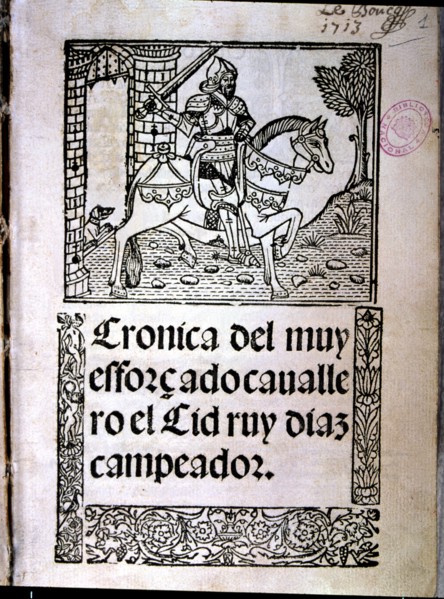 1713
1
Cronica del muy
esforçado caualle
ro el Cid ruy diaz
campeador.